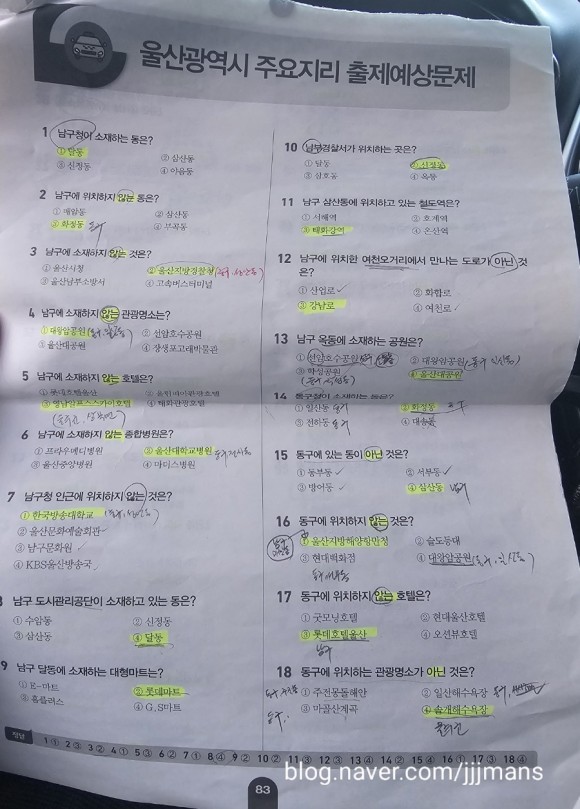 울산광역시 주요지리 출제예상문제
1 남구청이 소재하는 동은?
① 달동 ② 삼산동
③ 신정동 ④ 야음동
2 남구에 위치하지 않는 동은?
① 매암동 ② 삼산동
③ 화정동 ④ 부곡동
3 남구에 소재하지 않는 것은?
① 울산시청 ② 울산지방경찰청
③ 울산남부소방서 ④ 고속버스터미널
4 남구에 소재하지 않는 관광명소는?
① 대왕암공원 ② 선암호수공원
③ 울산대공원 ④ 장생포고래박물관
5 남구에 소재하지 않는 호텔은?
① 롯데호텔울산
③ 영남알프스스카이호텔 ④ 태화관광호텔
6 남구에 소재하지 않는 종합병원은?
① 프라우메디병원 ② 울산대학교병원
③ 울산중앙병원 ④ 마더스병원
7 남구청 인근에 위치하지 않는 것은?
① 한국방송대학교
② 울산문화예술회관
③ 남구문화원
④ KBS울산방송국
8 남구 도시관리공단이 소재하고 있는 동은?
① 수암동 ② 신정동
③ 삼산동 ④ 달동
9 남구 달동에 소재하는 대형마트는?
① E-마트 ② 롯데마트
③ 홈플러스 ④ G.S마트
10 남부경찰서가 위치하는 곳은?
① 달동 ② 신정동
③ 삼호동 ④ 옥동
11 남구 삼산동에 위치하고 있는 철도역은?
① 서해역 ② 호계역
③ 태화강역 ④ 온산역
12 남구에 위치한 여천오거리에서 만나는 도로가 아닌 것
은?
① 산업로 ② 화합로
③ 강남로 ④ 여천로
13 남구 옥동에 소재하는 공원은?
① 선암호수공원 ② 대왕암공원
③ 화정공원 ④ 울산대공원
14 동구청이 소재하는 동은?
① 일산동 ② 화정동
③ 전하동 ④ 대송동
15 동구에 있는 동이 아닌 것은?
① 동부동 ② 서부동
③ 방어동 ④ 삼산동
16 동구에 위치하지 않는 것은?
① 울산지방해양항만청 ② 슬도등대
③ 현대백화점 ④ 대왕암공원
17 동구에 위치하지 않는 호텔은?
① 굿모닝호텔 ② 현대울산호텔
③ 롯데호텔울산 ④ 오션뷰호텔
남구
18 동구에 위치하는 관광명소가 아닌 것은?
① 주전몽돌해안 ② 일산해수욕장
③ 마골산계곡 ④ 솔개해수욕장
정답 1① 2③ 3② 4① 5③ 6② 7① 8④ 9② 10② 11③ 12③ 13④ 14② 15④ 16① 17③ 18④
83
blog.naver.com/jjjmans